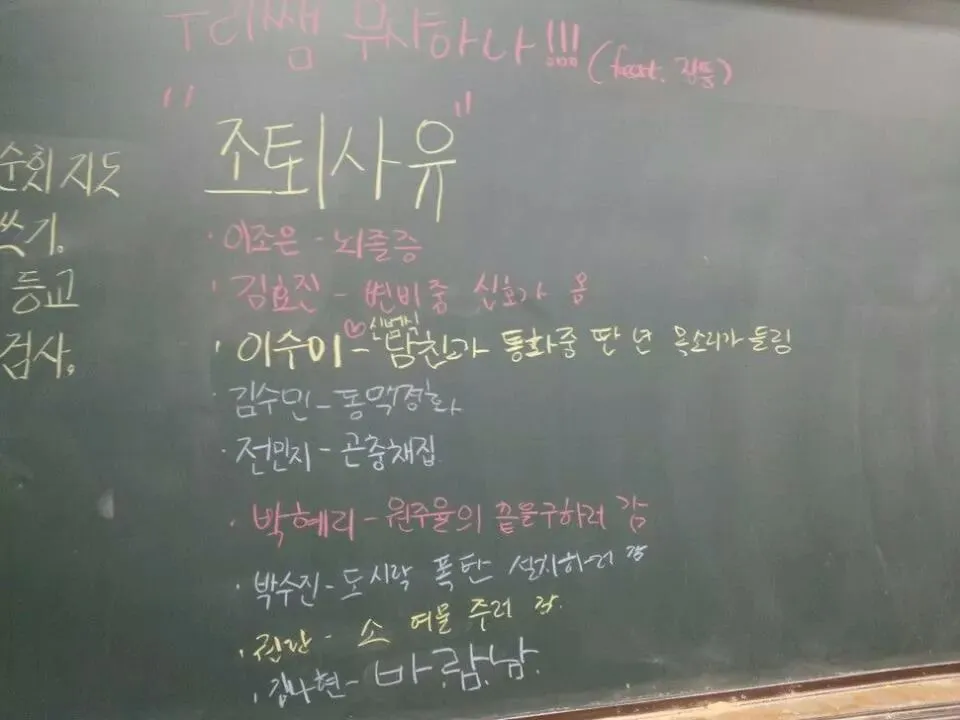 우리쌤 무사하나!!! (feat. 점통)
"조퇴사유"
순회지도
쓰기.
등교
검사.
· 이조은 - 뇌졸증
· 김효진 - 변비중 신호가 옴
· 이수이 - ♡신배식 남친과 통화중 딴 년 목소리가 들림
· 김수민 - 동맥경화
· 전민지 - 곤충채집
· 박혜리 - 원주율의 끝을구하러 감
· 박수진 - 도시락 폭탄 설치하러 감
· - 소 여물 주러 감.
· 김나현 - 바.람.남.